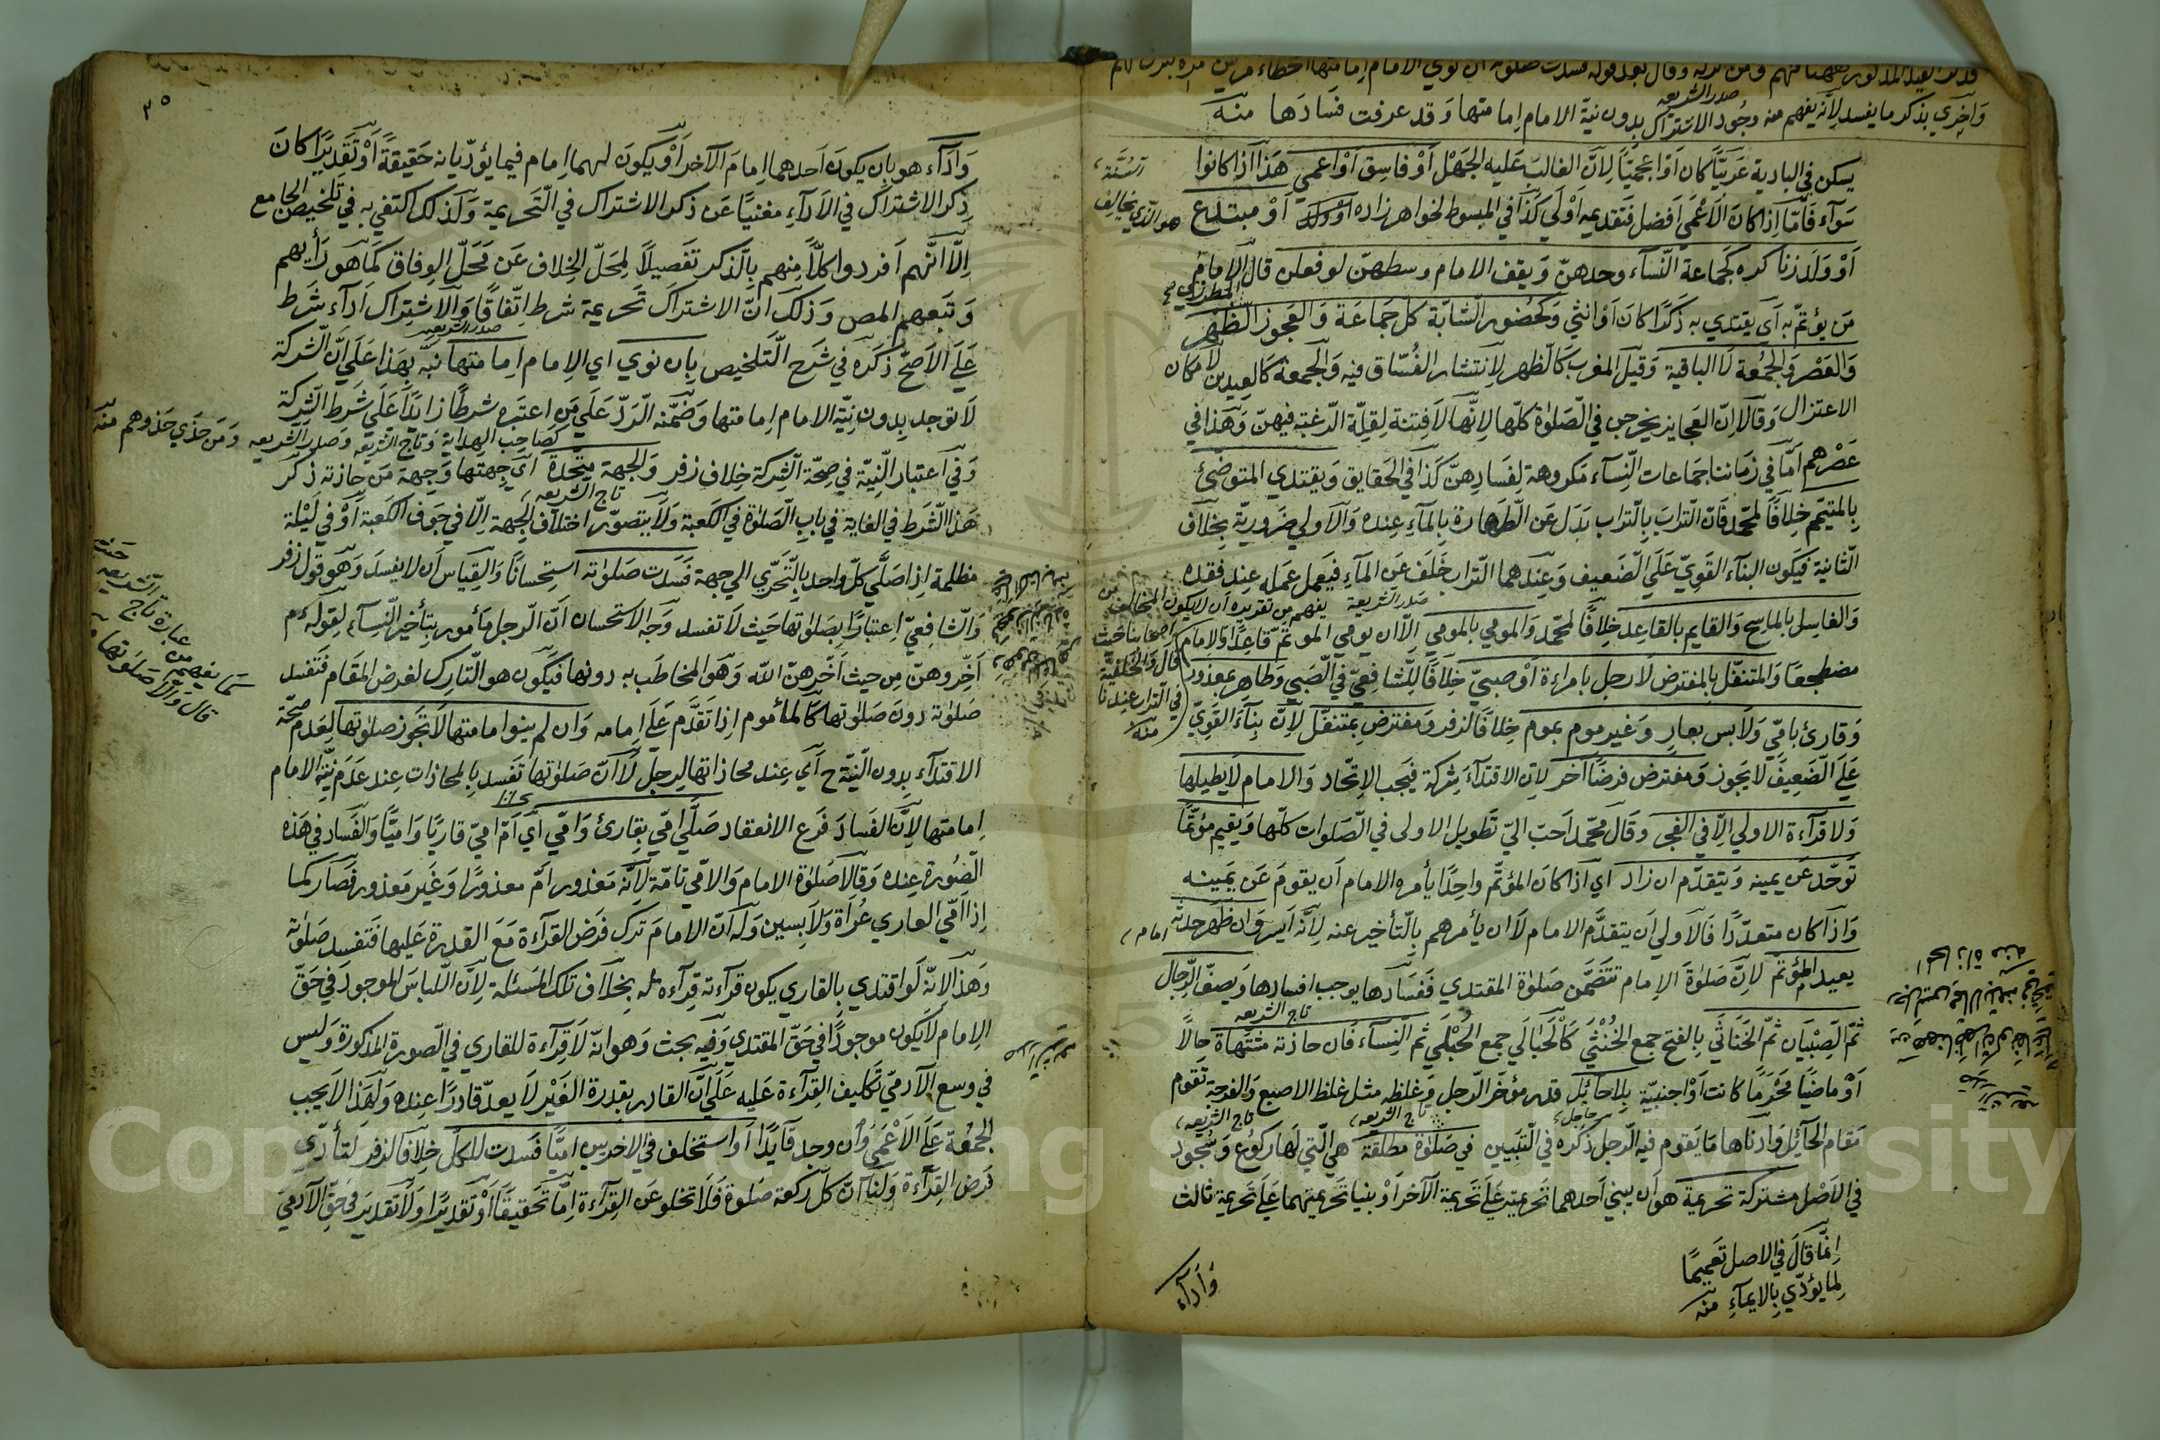 وآخري بذكر ما يفسد لانه يفهم منه وجود الاشتراك بدون نية الامام امامتها وقد عرفت فسادها منه
صدر الشريعه
يسكن في البادية عَرَبيًّا كان اَوْ اعجميًّا لِاَنَّ الغالبَ عَليه الجَهْل اَوْ فاسِق اَوْ اعمي هَذا اذا كانوا
سَوآء فَاَمّا اِذا كانَ الاَعْمَي اَفضل فتَقديمه اَوْلَي كَذا في المبسوط لخواهر زاده اَوْ مبتدِع
هو الّذي يخالف
السُنّة
اَوْ وَلَد زِنا كره كَجماعة النّسآء وحدهنّ وَيقف الامام وسطهنّ لو فعلن قالَ الاِمام
المطرزي
مَن يؤتمّ به آي يقتدي به ذَكَرًا كانَ اَوْ انثي وَكحُضور الشّابّة كل جَمَاعَة وَالعَجوز الظّهْر
وَالعَصْر وَالجُمُعة لَا الباقية وَقيل المغرب كَالظهر لِانتشار الفُسّاق فيه وَالجمعة كَالعيدين لامكان
الاعتزال وَقالا انّ العجايز يخرجن في الصّلوٰة كلّها لِانّها لَا فِتنة لِقِلّة الرّغبة فيهنّ وَهَذا في
عَصْرهم اَمّا في زمَاننا جمَاعات النّسآء مَكروهة لِفَسَادهنّ كَذا في الحقايق وَيقتدي المتوضّئ
بِالمتيَمّم خِلَافًا لمحمّد فَانّ التّرابَ بِالتّراب بَدَل عَن الطّهارة بِالمآءِ عِنده وَالاَولي ضَروريّة بخِلَاف
الثّانية فَيكون البنآء القويّ عَلَي الضّعيف وَعِندهما التّراب خَلَف عَن المآءِ فيَعمل عمَله عِند فقده
صدر الشريعة
وَالغاسِل بِالماسِح وَالقايم بالقاعِد خِلَافًا لمحمّد وَالمومي بالمومي اِلّا ان يومي الموتمّ قاعِدًا وَالامام
مضطجعًا وَالمتنفّل بالمفترض لَا رجل بامراءة اَوْ صبيّ خِلَافًا لِلشّافِعيّ في الصّبي وَطاهر بمعذور
قال والخلفية
في التراب عندنا
منه
وَقارئ بامّي وَلَابس بعارٍ وَغير مومٍ بمومٍ خِلَافًا لزفر وَمفترضِ بمتنفّل لِاَنّ بِنآءَ القَويّ
عَلَي الضّعِيفَ لَا يجوز وَمفترض فرضًا آخر لِانّ الاقتدآءَ شِركة فيَجب الاِتّحاد وَالامام لَا يطيلها
وَلا قرآءة الاولي اِلّا في الفجر وَقالَ محمّد اَحبّ اليّ تَطويل الاولي في الصّلوات كلّها وَيقيم مؤتمًّا
تَوحّد عَن يمينه وَيتقدّم ان زاد اي اذا كانَ المؤتمّ واحِدًا يأمره الامام اَن يقومَ عَن يَمينه
وَاذا كان متعدّدًا فَالاَولي اَن يتقدَّم الامام لَا ان يأمرهم بالتّأخير عنه لِانّه اَيسر وَان ظَهَر حدثه
امام
يعيد المؤتمّ لِانّ صَلوٰةَ الاِمام تتضَمّن صَلوٰة المقتدي فَفسَادها يوجب افسادها وَيصفّ الرّجال
تاج الشريعه
ثمّ الصِبْيَان ثمّ الخَنَاثَي بِالفتح جمع الخُنْثَي كَالْحَبَالَي جمع الحُبْلَي ثم النِساء فَان حاذته مشتَهاة حالًا
اَوْ ماضيًا مَحْرَمًا كانت اَوْ اجنبيّة بِلا حَائِلٍ قدر مؤخّر الرّحل وَغلظه مثل غلظ الاصبع وَالفرجة تقوم
تاج الشريعه
تاج الشريعه
مقام الحَائِل وَادناها مَا يَقوم فيه الرّجل ذكَره في التّبَيين في صَلوٰة مطلقَة هي الّتي لهَا ركوع وَسُجُود
في الاَصْل مشتركة تحريمة هو اَن يبني اَحدهما تَحريمته عَلَي تَحريمة الآخر اَوْ بنيا تَحريمتهما عَلَي تَحريمة ثالث
اِنّما قَالَ في الاصل تعميمًا
لما يؤدّي بالايمآءِ منه
وَاَدآء
٣٥
وَاَدآء هو بان يكونَ اَحدهما اِمامَ الآخر اَوْ يكون لهما اِمام فيما يؤدّيانه حَقيقةً اَوْ تَقديرًا كانَ
ذِكر الاشتراك في الاَدآءِ مغنيًا عَن ذكر الاشتراك في التّحريمة وَلَذلك اكتفي به في تلخيص الجامع
اِلّا اَنّهم اَفردوا كلًّا مِنهم بِالّذكر تَفصيلًا لمِحَلّ الخِلاف عَن مَحَلّ الوِفاق كمَا هو رَأيهم
وَتبعهم المص وَذلك انّ الاشتراك تَحريمة شرط اتّفاقًا وَالاشتراك اَدآء شَرط
صدر الشريعه
عَلَي الاَصحّ ذكَره في شَرح التَلخيص بِان نوي اي الاِمام امامتها نبّه بِهَذا عَلَي اَنّ الشركة
لَا توجد بِدون نيّة الامام اِمامتها وَضَمّنه الرّدّ عَلَي مَن اعتبره شرطًا زايدًا عَلَي شَرط الشّركة
كصاحب الهداية وتاج الشريعه وصدر الشريعه ومَن حذي حذوهم منه
وَفي اعتبار النّيّة في صِحّة الشِركة خِلاف زفر وَالجهة متّحدة اَي جِهتها وَجهة مَن حاذته ذكر
تاج الشريعه
هَذا الشّرط في الغاية في باب الصّلوٰة في الكعبة وَلَا يتصوّر اختلاف الجهة اِلّا في جَوف الكعبة اَوْ في لَيْلة
مظلمة اِذا صَلَّي كلّ واحد بِالتّحرّي الي جهة فَسَدت صَلوٰته استِحسانًا وَالقياس اَن لا يفسدَ وَهو قول زفر
وَالشّافِعيّ اعتبارًا بصَلوٰتها حَيث لَا تفسد وَجه الاستحسان اَنّ الرّجل مأمور بتأخير النِّسآء لِقوله عم
اَخّروهنّ مِن حيث اخّرهنّ الله وَهو المخاطَب به دونها فيَكون هو التّارك لفرض المقام فَتفسد
كما يفهم من عبارة تاج الشريعه حيث
قال والّا صلوتها
صَلوٰته دونَ صَلوٰتها كَالمأموم اِذا تقدَّم عَلَي امامه وَان لم ينو امامتها لَا تَجوز صلوٰتها لِعَدم صحّة
الاقتدآء بِدون النيّة ح اَي عِند محاذاتها لِرجل لَا اَنّ صَلوٰتها تَفسد بِالمحاذات عِند عَدَم نيّة الامام
اِمامتها لِاَنّ الفسادَ فَرع الانعقاد صَلَّي امّي بِقارئ وَامّي آي اَمّ امّيّ قاريًا وَاميًّا وَالفَساد في هَذه
الصُورة عنده وَقالا صَلوٰة الامام وَالامّي تامّة لِانّه مَعذور امّ معذورًا وَغَير مَعذور فَصَار كما
اِذا اَمّ العاري عُراة وَلَابسِين وَله اَنّ الامامَ تَرك فَرض القرآءة مَعَ القدرة عَليها فَتفسد صَلوٰته
وَهذا لِانّه لَو اقتدي بالقاري يكون قرآءته قرآءة له بِخلاف تلك المسئلة لِاَنّ اللّباس الموجودَ في حَقّ
الاِمام لَا يكون موجودًا في حَقّ المقتدي وَفيه بحث وَهو انّه لَا قرآءة للقاري في الصّورة المذكورة وَليس
في وسع الآدميّ تَكليف القِرآءة عَليه عَلَي اَنّ القادر بقدرة الغَيْر لَا يعدّ قادرًا عِنده وَلِهَذا لَا يجب
الجُمُعة عَلَي الاَعْمَي وَان وجد قآيدًا اَو استخلف في الاخريين اميًّا فَسدت للكلّ خِلَافًا لزفر لتأدّي
فرض القِرآءة وَلنا اَنّ كلّ ركعة صَلوٰة فَلا تخلو عَن القِرآءة اِمّا تَحقيقًا اَوْ تقديرًا وَلَا تقديرَ في حَقّ الآدميّ
Copyright © King Saud University